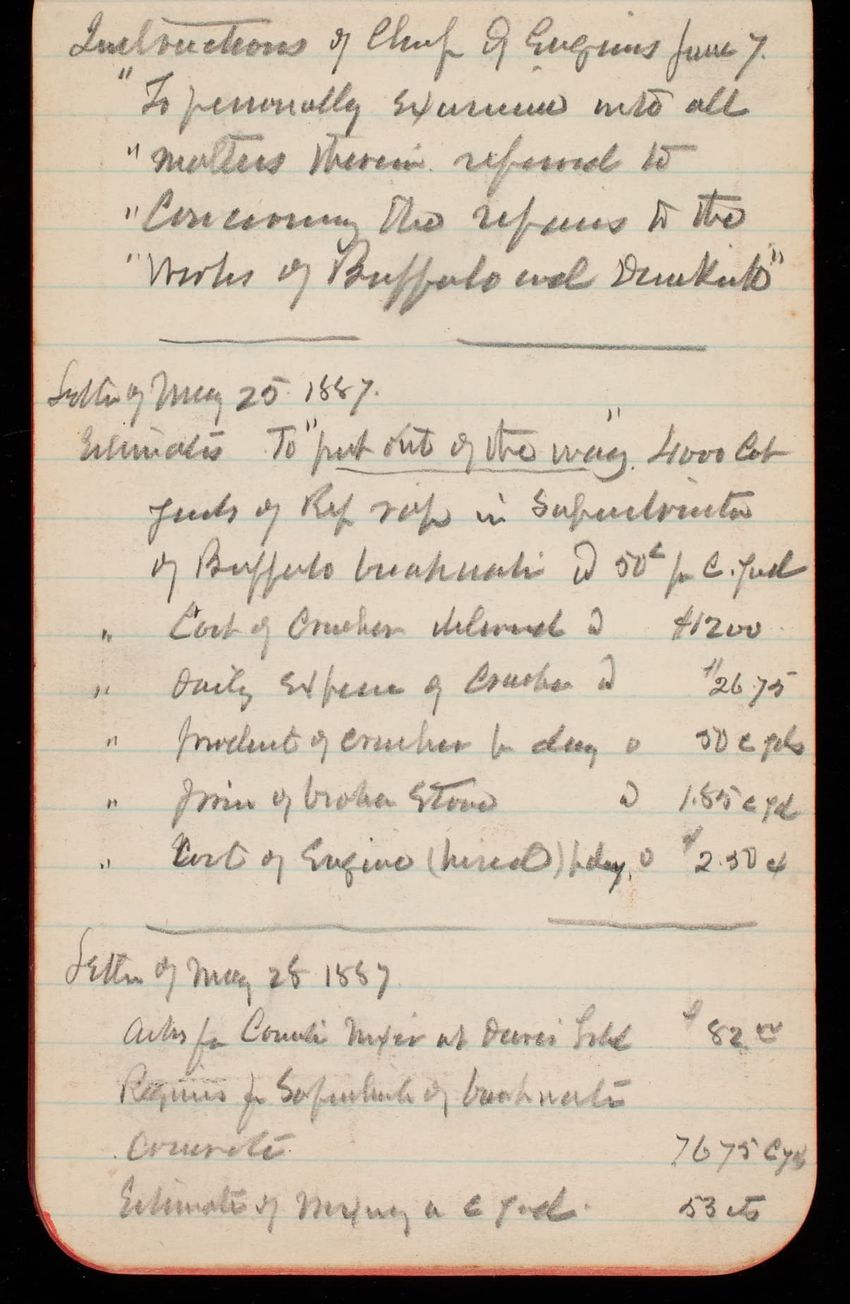 Instructions of Chief of Engineers June 7.
"To personally examine into all
"matters therein referred to
"Concerning the repairs to the
"Works of Buffalo and Dunkirk"
Letter of May 25 1887.
Estimates To "put out of the way" 4000 Cub
yards of Rip rap in Superstructure
of Buffalo breakwater @ 50c pr C. yard
" Cost of Crusher delivered @ $1200
" Daily Expense of Crusher @ $26.75
" product of crusher pr day @ 50 c yds
" price of broken Stone @ 1.85 c yd
" Cost of Engine (hired) pr day @ $2.50
Letter of May 28 1887
Asks for Concrete Mixer at $82
Requires for Superstructure of breakwater
Concrete 7675 C yds
Estimate of Mixing a C yard. 53 cts